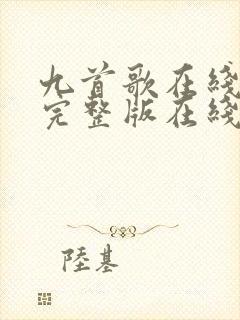 九首歌在綫
完整版在綫
陸基